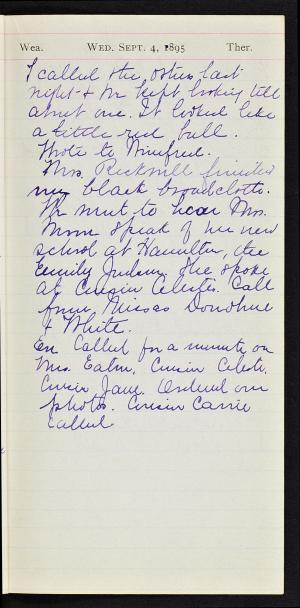 Wea. WED. SEPT. 4, 1895 Ther.
I called the others last
night & we kept looking till
about one. It looked like
a little red ball.
Wrote to Winifred.
Mrs. Rockwell finished
my black broadcloth.
We went to hear Mrs.
speak of her new
school at Hamilton, the
Emily Judson. She spoke
at Cousin Celeste's. Call
from Misses Donohue
& White.
Ev. Called for a minute on
Mrs. Eaton, Cousin Celeste,
Cousin Jane. Ordered our
photos. Cousin Carrie
called.